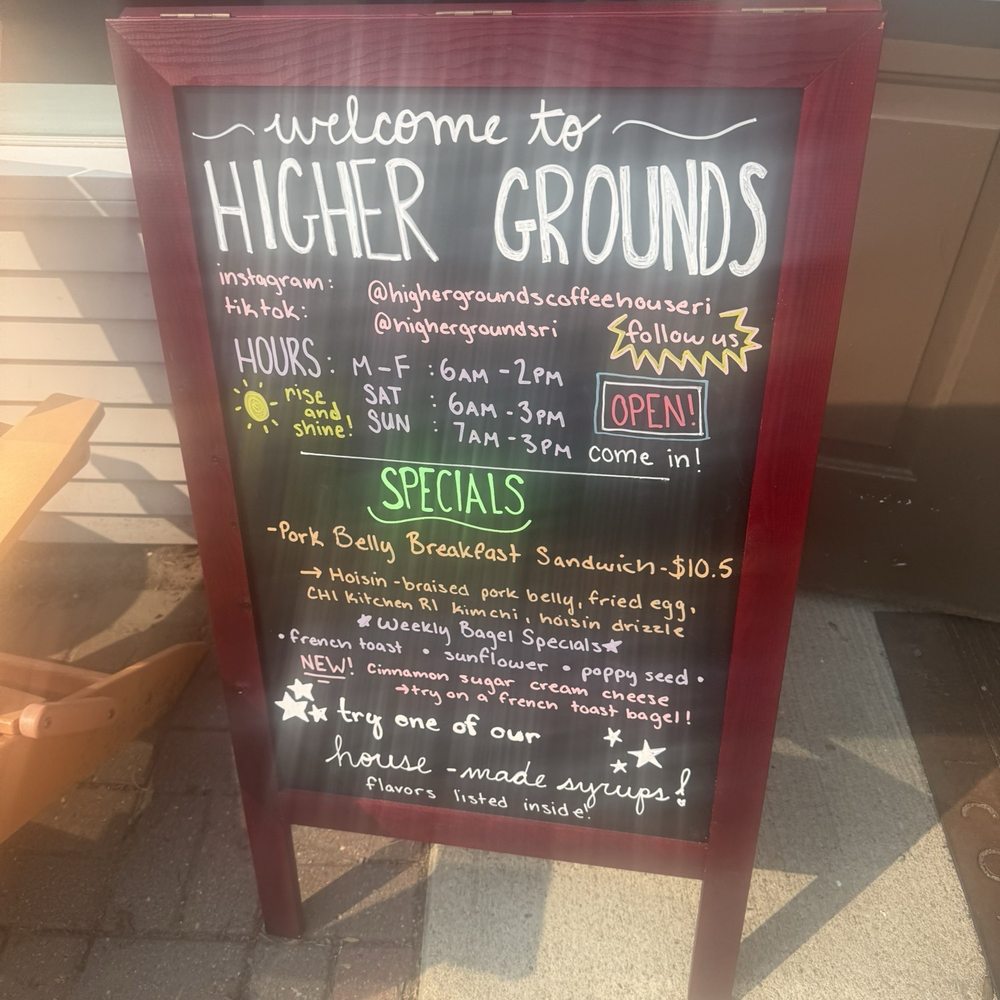 welcome to
HIGHER GROUNDS
instagram: @highergroundscoffeehouseri
tiktok: @highergroundsri
follow us
HOURS: M-F : 6AM - 2PM
SAT : 6AM - 3PM
SUN : 7AM - 3PM
rise
and
shine!
OPEN!
come in!
SPECIALS
-Pork Belly Breakfast Sandwich-$10.5
→ Hoisin-braised pork belly, fried egg,
CHI Kitchen RI kimchi, hoisin drizzle
★ Weekly Bagel Specials ★
• french toast • sunflower • poppy seed •
NEW! Cinnamon sugar cream cheese
→try on a french toast bagel!
try one of our
house-made syrups!
flavors listed inside!